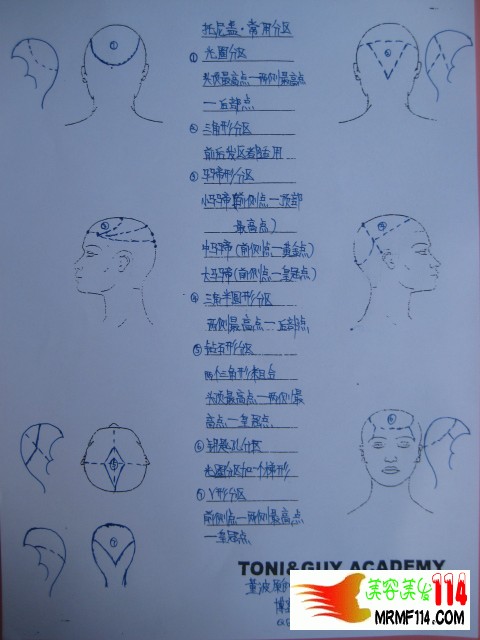 托尼盖·常用分区
① 光圈分区
头顶最高点一两侧最高点
一后部点
② 三角形分区
前后发区都适用
③ 马蹄形分区
小马蹄(前侧点一顶部
最高点)
中马蹄(前侧点一黄金点)
大马蹄(前侧点一皇冠点)
④ 三角半圆形分区
两侧最高点一后部点
⑤ 钻石形分区
两个三角形组合
头顶最高点一两侧最
高点一皇冠点
⑥ 钥匙孔分区
光圈分区加一个梯形
⑦ Y形分区
前侧点一两侧最高点
一皇冠点
TONI&GUY ACADEMY
美容美发114
MRMF114.COM